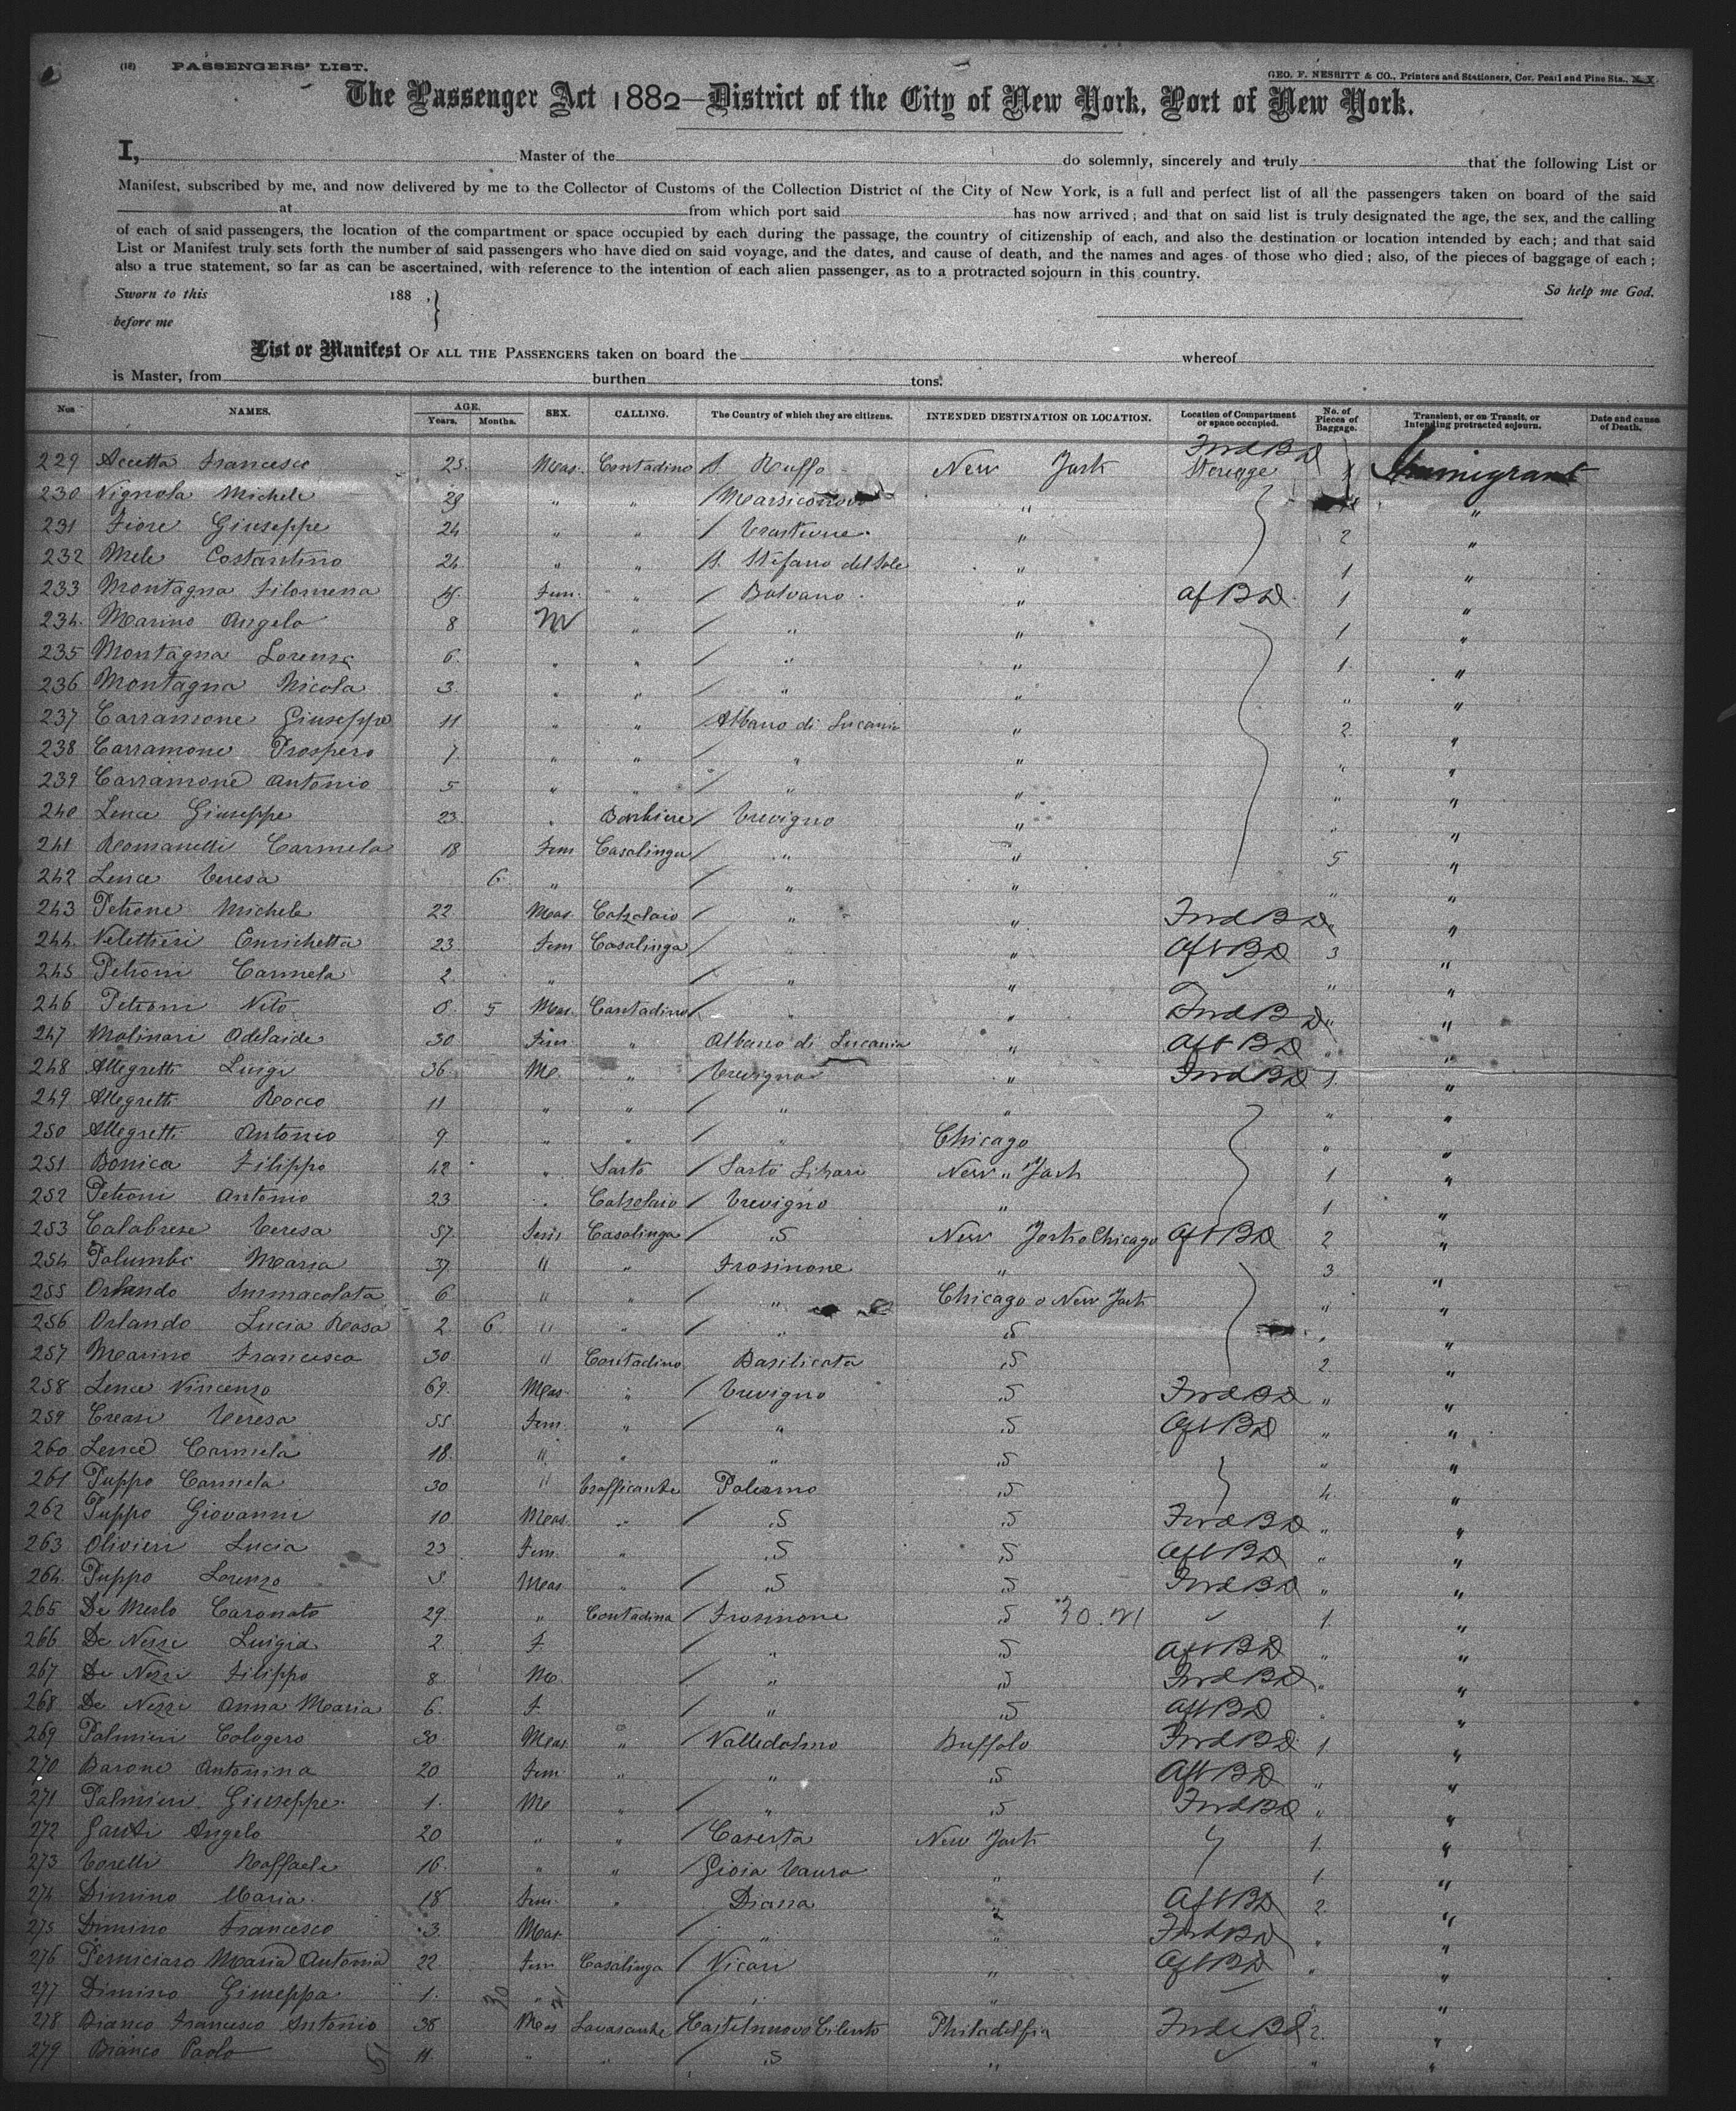 (18) PASSENGERS' LIST.
GEO. F. NESBITT & CO., Printers and Stationers, Cor. Pearl and Pine Sts., N. Y.
The Passenger Act 1882—District of the City of New York, Port of New York.
I, Master of the do solemnly, sincerely and truly that the following List or
Manifest, subscribed by me, and now delivered by me to the Collector of Customs of the Collection District of the City of New York, is a full and perfect list of all the passengers taken on board of the said
at from which port said has now arrived; and that on said list is truly designated the age, the sex, and the calling
of each of said passengers, the location of the compartment or space occupied by each during the passage, the country of citizenship of each, and also the destination or location intended by each; and that said
List or Manifest truly sets forth the number of said passengers who have died on said voyage, and the dates, and cause of death, and the names and ages of those who died; also, of the pieces of baggage of each;
also a true statement, so far as can be ascertained, with reference to the intention of each alien passenger, as to a protracted sojourn in this country.
Sworn to this 188 . } So help me God.
before me
List or Manifest OF ALL THE PASSENGERS taken on board the whereof
is Master, from burthen tons.
Nos NAMES. AGE. Years. Months. SEX. CALLING. The Country of which they are citizens. INTENDED DESTINATION OR LOCATION. Location of Compartment or space occupied. No. of Pieces of Baggage. Transient, or on Transit, or Intending protracted sojourn. Date and cause of Death.
229 Acetta Francesco 25 Mas. Contadino S. Ruffo New York Fwd B D Steerage 1 Immigrant
230 Vignola Michele 29 " " / Marsiconovo " "
231 Fiore Giuseppe 24 " " / " 2 "
232 Mele Costantino 24 " " S. Stefano del Sole " 1 "
233 Montagna Filomena Fem. " / Balvano " Af B D. 1 "
234 Marino Angelo 8 M " / " " 1 "
235 Montagna Lorenzo 6 " " / " " 1 "
236 Montagna Nicola 3 " " / " " " "
237 Carramone Giuseppe 11 " " / Albano di Lucania " 2 "
238 Carramone Prospero 7 " " / " " " "
239 Carramone Antonio 5 " " / " " " "
240 Lence Giuseppe 23 " Barbiere / Trevigno " " "
241 Romanelli Carmela 18 Fem Casalinga / " " 5 "
242 Lence Teresa 6 " / " " " "
243 Petrone Michele 22 Mas. Calzolaio / " " Fwd B D " "
244 Velettieri Enrichetta 23 Fem Casalinga / " Aft B D 3 "
245 Petroni Carmela 2 " / " " " "
246 Petroni Vito 0 5 Mas. Contadino / " " Fwd B D " "
247 Molinari Adelaide 30 Fem " Albano di Lucania " Aft B D " "
248 Allegretti Luigi 36 M. " / Trevigno " Fwd B D 1 "
249 Allegretti Rocco 11 " " / " " " "
250 Allegretti Antonio 9 " " / " Chicago " "
251 Bonica Filippo 42 " Sarto / New York 1 "
252 Petroni Antonio 23 " Calzolaio / Trevigno " 1 "
253 Calabrese Teresa 57 Fem Casalinga / S New York o Chicago Aft B D 2 "
254 Palumbo Maria 37 " " Frosinone " 3 "
255 Orlando Immacolata 6 " " / " Chicago o New York " "
256 Orlando Lucia Rosa 2 6 " " / " S " "
257 Marino Francesca 30 " Contadino Basilicata S 2 "
258 Lence Vincenzo 69 Mas " / Trevigno S Fwd B D " "
259 Creasi Teresa 55 Fem. " / " S Aft B D " "
260 Lence Carmela 18 " " " S " "
261 Puppo Carmela 30 " Trafficante Palermo S 4 "
262 Puppo Giovanni 10 Mas. " / S S Fwd B D " "
263 Olivieri Lucia 23 Fem. " S S Aft B D " "
264 Puppo Lorenzo Mas " / S S Fwd B D " "
265 De Merlo 29 " Contadina / Frosinone S 1 "
266 De Luigia 2 F. " S Aft B D " "
267 De Filippo 8 M. / " S Fwd B D " "
268 De Anna Maria 6 F. / " S Aft B D "
269 Palmieri Calogero 30 Mas " / Valledolmo Buffalo Fwd B D 1 "
270 Barone Antonina 20 Fem " " S Aft B D " "
271 Palmieri Giuseppe 1 M " / " S Fwd B D " "
272 Angelo 20 " " / Caserta New York 1 "
273 Torelli Raffaele 16 " " / Gioia Tauro " 1 "
274 Dimino Maria 18 Fem. " Diana " Aft B D 2 "
275 Dimino Francesco 3 Mas " " Fwd B D " "
276 Perniciaro Maria Antonia 22 Fem Casalinga / Vicari " Aft B D " "
277 Dimino Giuseppa 1 " / " " " "
278 Bianco Francesco Antonio 38 Mas Castelnuovo Cilento Philadelfia Fwd B D 2 "
279 Bianco Paolo 11 " " / S " " "